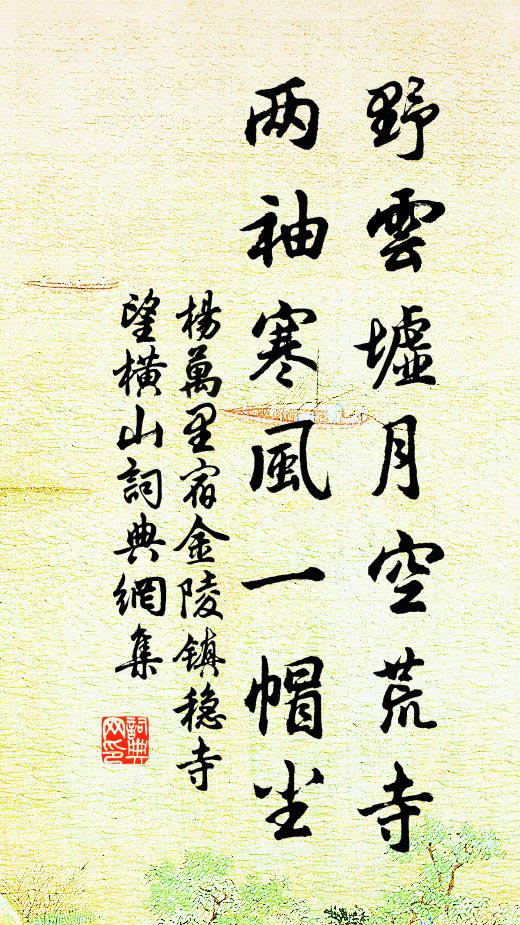 野雲墟月空荒寺
两袖寒風一帽尘
楊萬里宿金陵镇穏寺
望横山詞典網集
詞典
网印